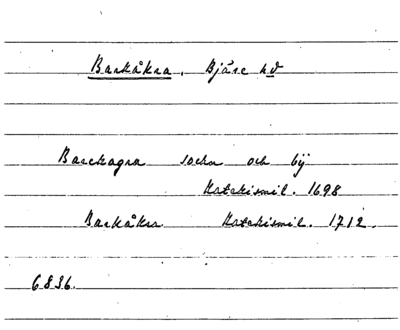 Barkåkra, Bjäre hd
Barckagra socken och by
Katekismil. 1698
Barkåkra Katekismil. 1712.
6836.